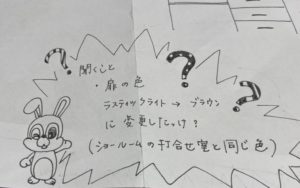 聞くこと
・扉の色
ラスティックライト→ブラウン
に変更したっけ?
(ショールームの打合せ室と同じ色)